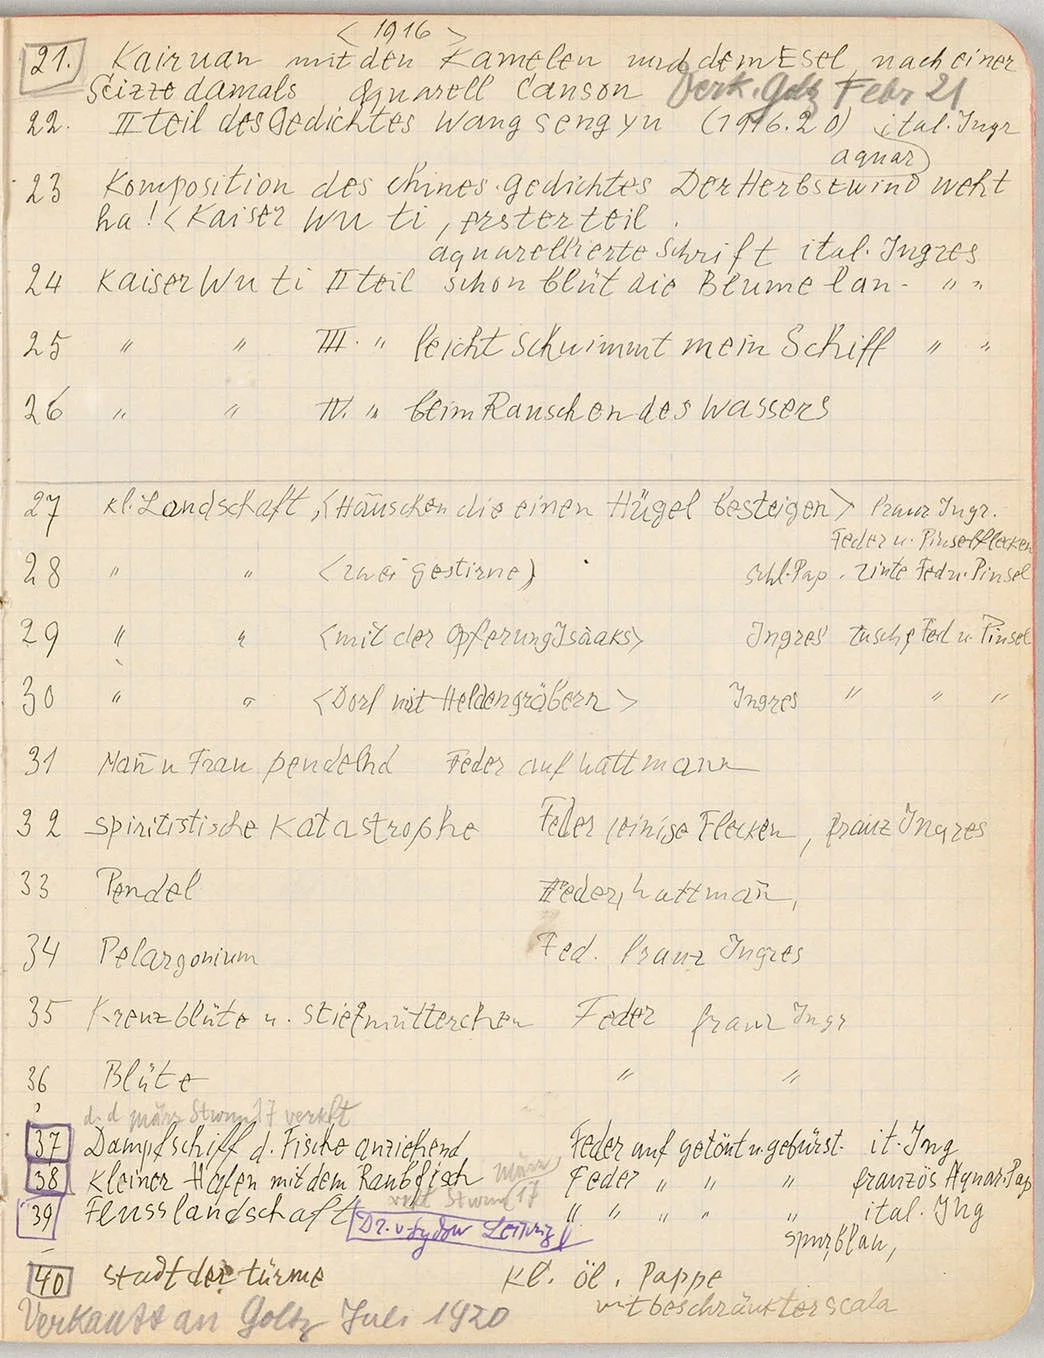 < 1916 >
21. Kairuan mit den Kamelen und dem Esel nach einer
Scizze damals aquarell Canson Verk. Goltz Febr 21
22. II teil des Gedichtes Wang Seng Yu (1916.20) ital. Ingr
aquar
23 Komposition des chines. Gedichtes Der Herbstwind weht
ha! < Kaiser Wu ti, erster teil
aquarellierte Schrift ital. Ingres
24 Kaiser Wu ti II teil schon blüt die Blume lan- " "
25 " " III. " leicht schwimmt mein Schiff " "
26 " " IV. " beim Rauschen des Wassers
27 kl. Landschaft, <Häuschen die einen Hügel besteigen> franz Ingr.
Feder u. Pinselflecken
28 " " <zwei gestirne) schl. Pap. Tinte Fed u. Pinsel
29 " " <mit der Opferung Isaaks> Ingres tusche Fed u. Pinsel
30 " " <Dorf mit Heldengräbern> Ingres " " "
31 Man̄ u Frau pendelnd Feder auf hattmann
32 spiritistische Katastrophe Feder (einige Flecken, franz Ingres
33 Pendel Feder, hattman̄,
34 Pelargonium Fed. franz Ingres
35 Kreuzblüte u. stiefmütterchen Feder franz Ingr
36 Blüte " "
d. d März Sturm 17 verkft
37 Dampfschiff d. Fische anziehend Feder auf getönt u. gebürst. it. Ing
38 Kleiner Hafen mit dem Raubfisch März Feder " " " französ Aquar. Pap
verk Sturm 17
39 Flusslandschaft Dr. v. Sydow Leipzig " " " " " ital. Ing
spur blau,
40 Stadt der türme Kl. öl. Pappe
mit beschränkter scala
Verkauft an Goltz Juli 1920